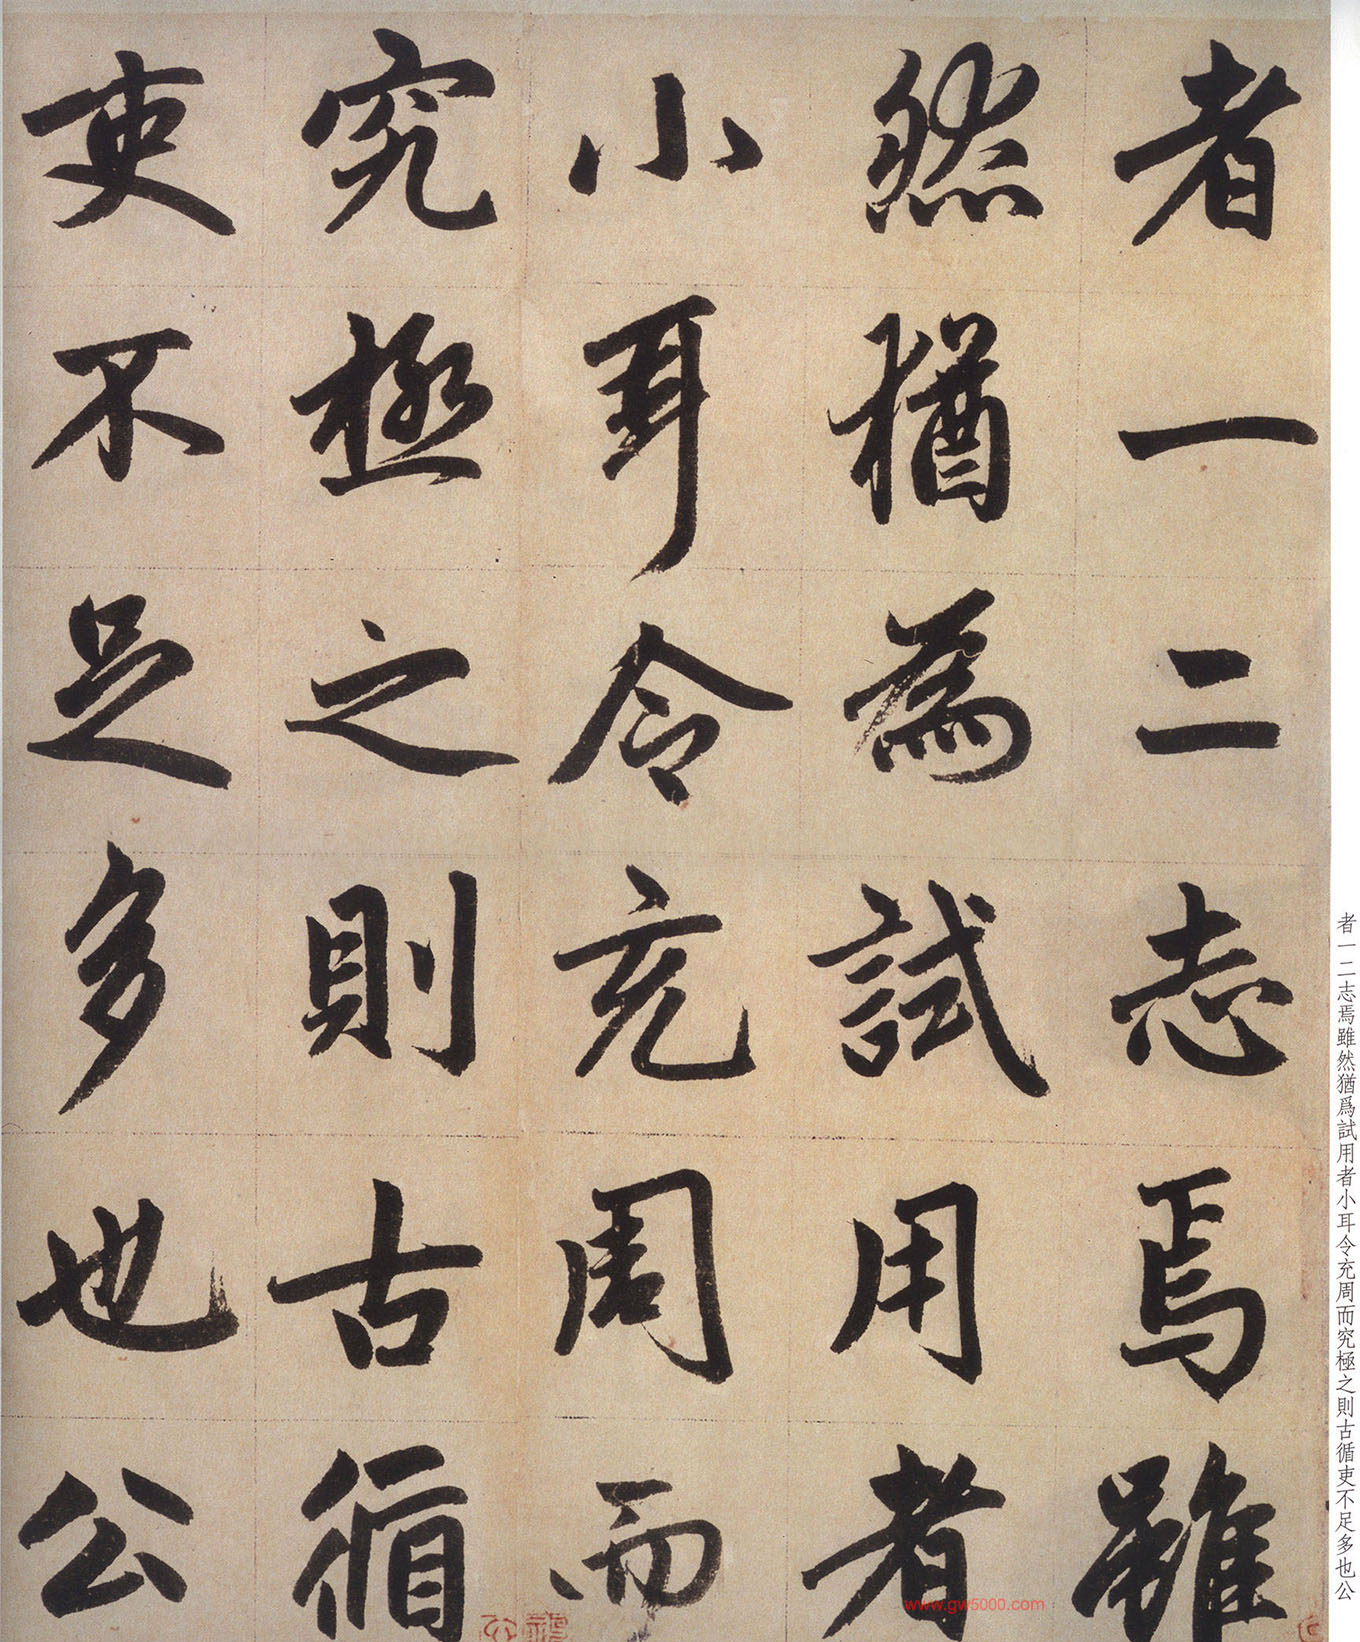 者一二志焉雖
然猶為試用者
小耳令充周而
究極之則古循
吏不足多也公
者一二志焉雖然猶爲試用者小耳令充周而究極之則古循吏不足多也公
www.gw5000.com